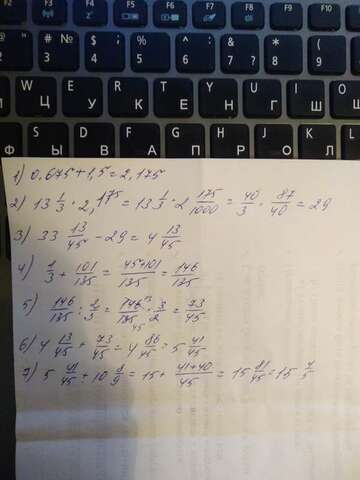 F2 F3 F4 F5 F6 F7 F8 F9 F10
" 2 # № 3 $ ; 4 % 5 ^ : 6 & ? 7 * 8 ( 9
Ц У К Е Н Г Ш
Ы В А П Р О Л
1) 0,675+1,5=2,175
2) 13 1/3 · 2,175 = 13 1/3 · 2 175/1000 = 40/3 · 87/40 = 29
3) 33 13/45 - 29 = 4 13/45
4) 1/3 + 101/135 = 45+101/135 = 146/135
5) 146/135 : 2/3 = 146/135 · 3/2 = 73/45
6) 4 13/45 + 73/45 = 4 86/45 = 5 41/45
7) 5 41/45 + 10 8/9 = 15 + 41+40/45 = 15 81/45 = 15